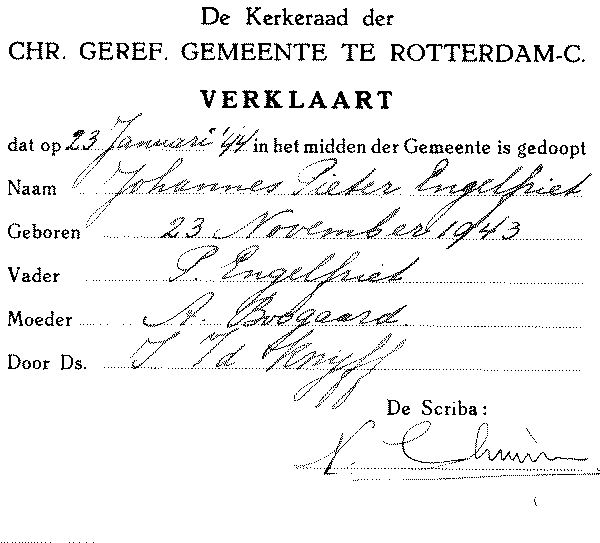 De Kerkeraad der
CHR. GEREF. GEMEENTE TE ROTTERDAM-C.
VERKLAART
dat op 23 Januari '44 in het midden der Gemeente is gedoopt
Naam Johannes Pieter Engelfriet
Geboren 23 November 1943
Vader P. Engelfriet
Moeder A. Boogaard
Door Ds. Knijff
De Scriba: